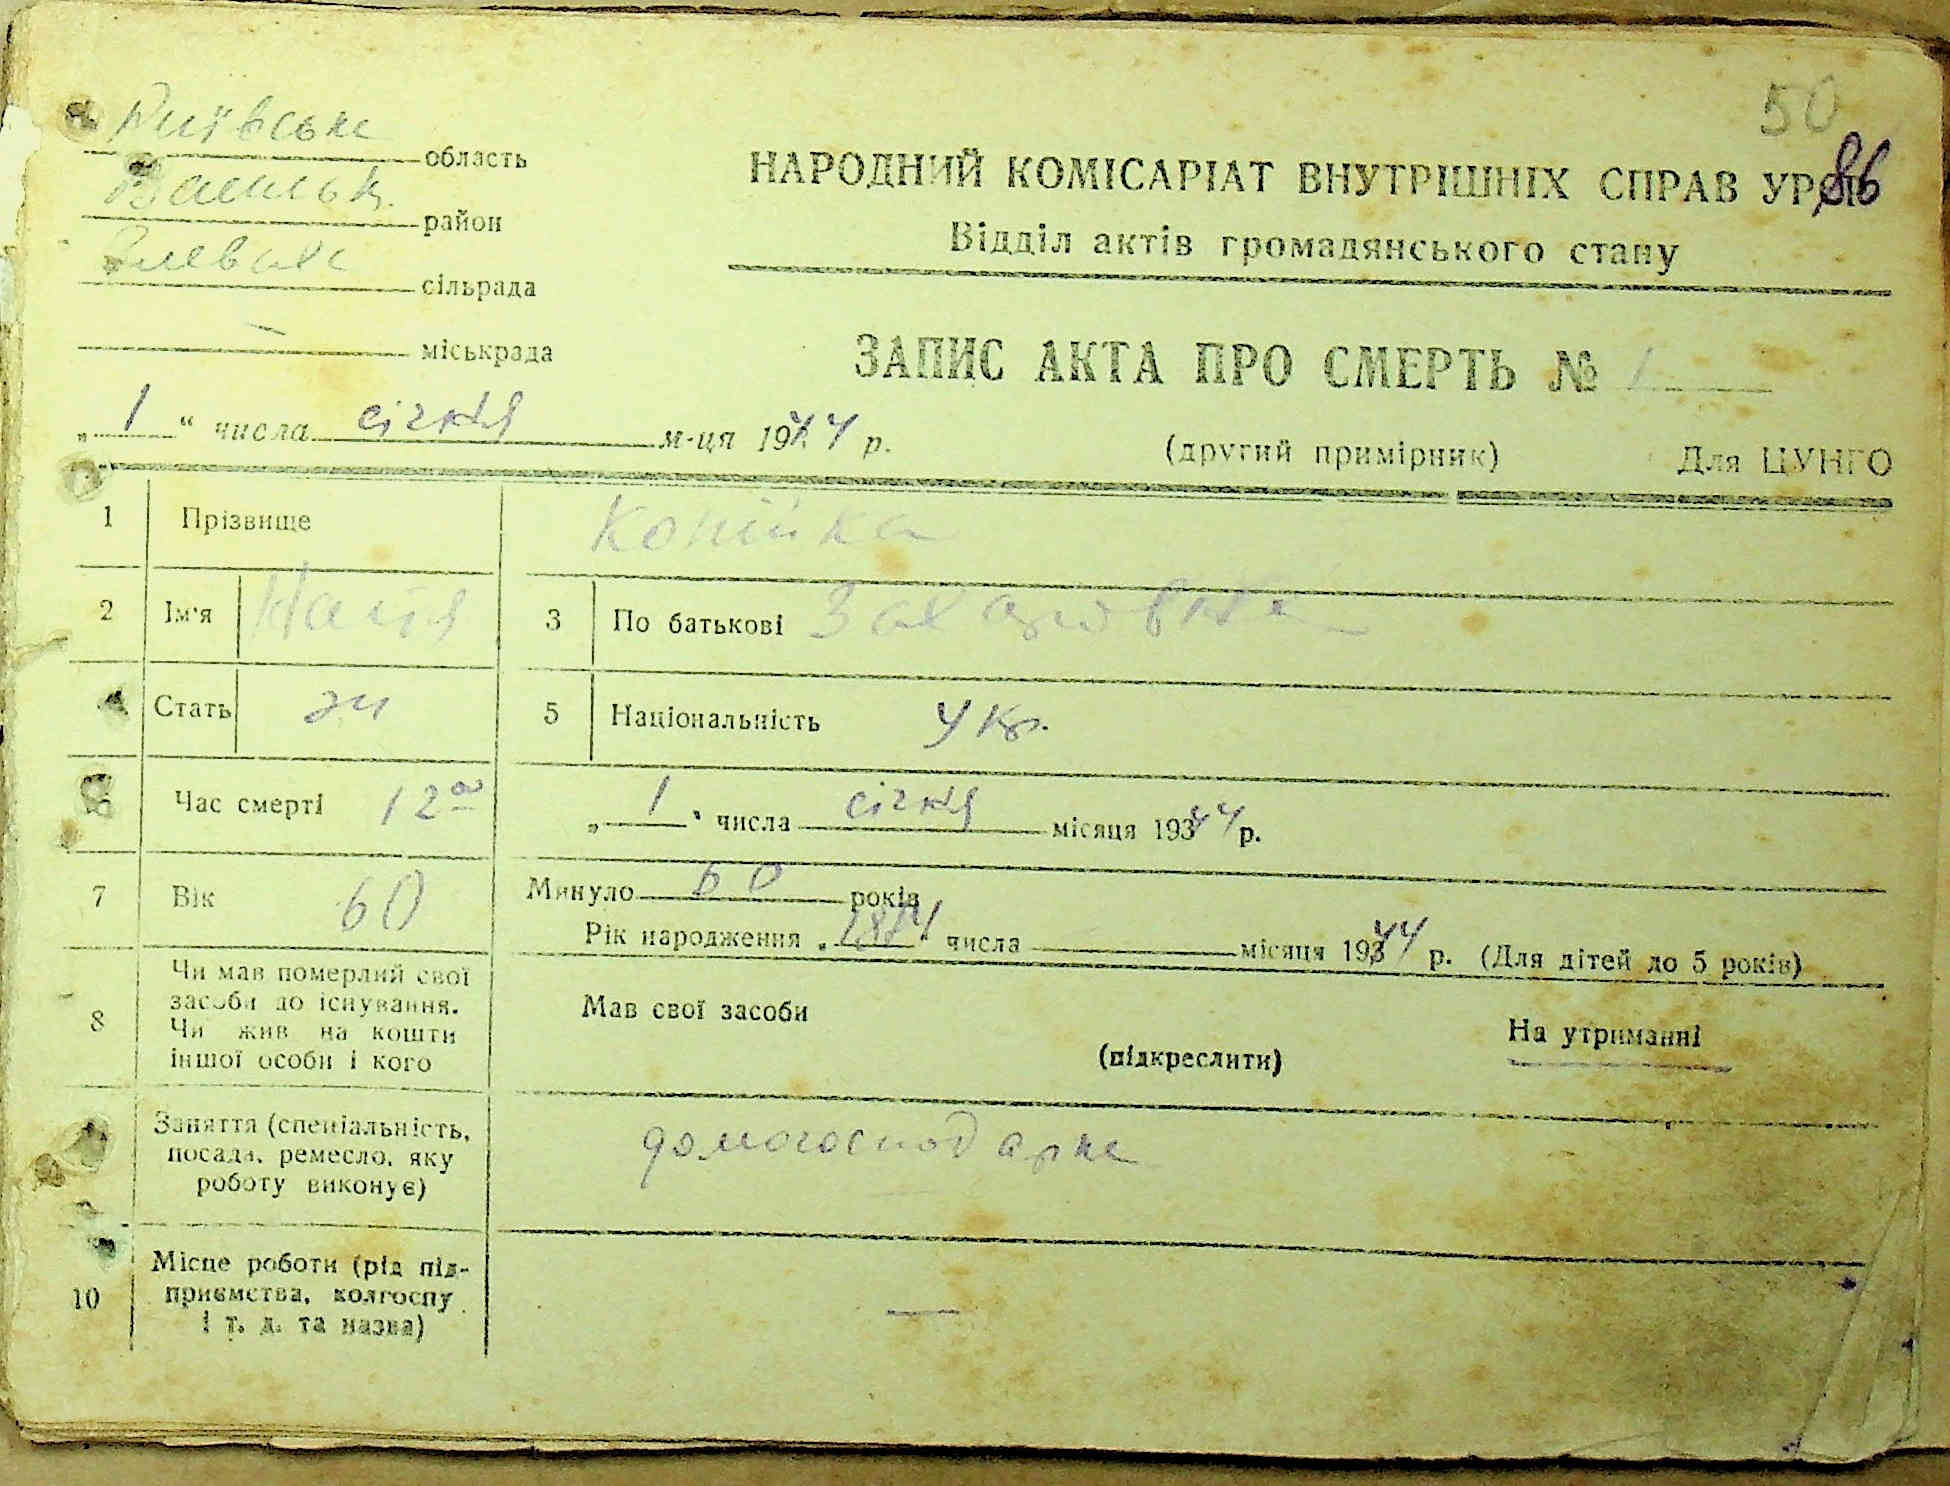 50
86
Київська область
НАРОДНИЙ КОМІСАРІАТ ВНУТРІШНІХ СПРАВ УРСР
Васильк. район
Відділ актів громадянського стану
сільрада
— міськрада
ЗАПИС АКТА ПРО СМЕРТЬ № 1
„ 1 “ числа січня м-ця 1944 р.
(другий примірник) Для ЦУНГО
1 Прізвище Копійка
2 Ім'я 3 По батькові Захаровна
Стать жі 5 Національність Укр.
Час смерті 12 00 „ 1 “ числа січня місяця 19344 р.
7 Вік 60 Минуло 60 років
Рік народження „ 1884 “ числа місяця 19344 р. (Для дітей до 5 років)
8 Чи мав померлий свої засоби до існування. Чи жив на кошти іншої особи і кого
Мав свої засоби
(підкреслити)
На утриманні
Заняття (спеціальність, посада, ремесло, яку роботу виконує)
домогосподарка
10 Місце роботи (рід підприємства, колгоспу і т. д. та назва)
—